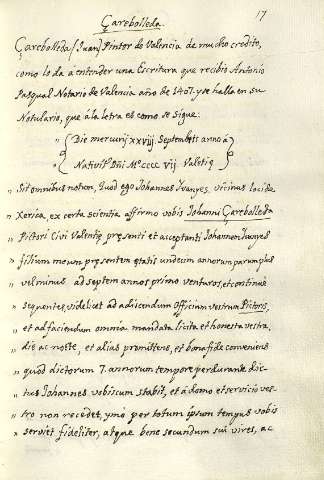 17
Çarebolleda.
Çarebolleda (Juan) Pintor de Valencia de mucho credito,
como lo da a entender una Escritura que recibio Antonio
Pasqual Notario de Valencia año de 1407. y se halla en su
Notulario, que á la letra es como se sigue:
„ Die mercurij xxviij Septembris anno á
„ Nativit.e Dñi Mº cccc vij. Valetię
„ Sit omnibus notum, Quod ego Johannes Ivanyes, vicinus loci de
„ Xerica, ex certa scientia affirmo vobis Johanni Çarebolleda
„ Pictori Civi Valentię presenti et acceptanti Johannem Ivanyes
„ filium meum pręsentem ętatis undecim annorum parum plus
vel minus ad septem annos primo venturos, et continue
„ sequentes, videlicet ad adiscendum Officium vestrum Pictoris,
„ et ad faciendum omnia mandata licita et honesta vestra,
„ die ac nocte, et alias promittens, et bona fide conveniens
„ quod dictorum 7. annorum tempore perdurante dic-
„ tus Johannes vobiscum stabit, et á domo et servicio ves-
„ tro non recedet, ymo per totum ipsum tempus vobis
„ serviet fideliter, atque bene secundum sui vires, ac